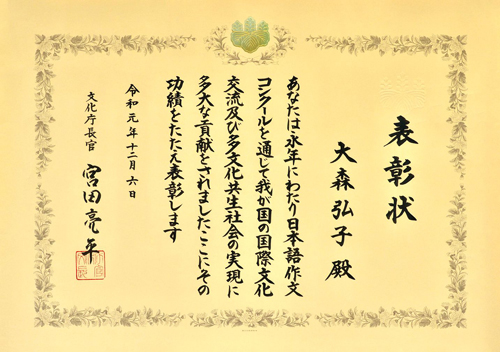 表彰状
大森弘子殿
あなたは永年にわたり日本語作文
コンクールを通じて我が国の国際文化
交流及び多文化共生社会の実現に
多大な貢献をされましたここにその
功績をたたえ表彰します
令和元年十二月六日
文化庁長官
宮田亮平